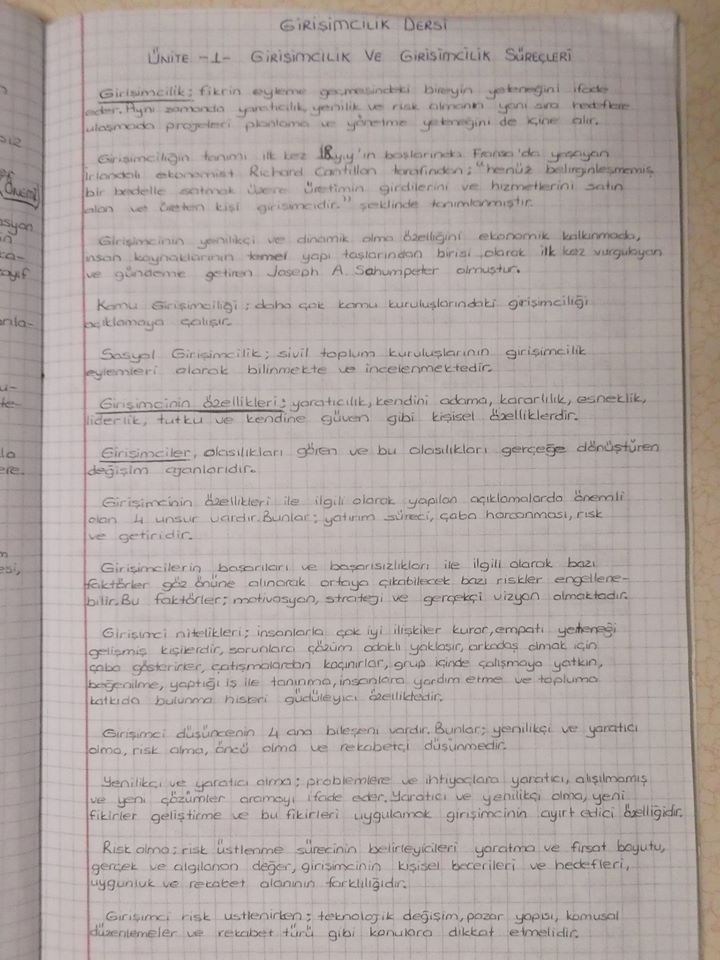 GİRİŞİMCİLİK DERSİ
ÜNİTE -1- GİRİŞİMCİLİK VE GİRİŞİMCİLİK SÜREÇLERİ
Girişimcilik; fikrin eyleme geçmesindeki bireyin yeteneğini ifade
eder. Aynı zamanda yaratıcılık, yenilik ve risk almanın yanı sıra hedeflere
ulaşmada projeleri planlama ve yönetme yeteneğini de içine alır.
Girişimciliğin tanımı ilk kez 18.yy'ın başlarında Fransa'da yaşayan
İrlandalı ekonomist Richard Cantillon tarafından; "henüz belirginleşmemiş
bir bedelle satmak üzere üretimin girdilerini ve hizmetlerini satın
alan ve üreten kişi girişimcidir." şeklinde tanımlanmıştır.
Girişimcinin yenilikçi ve dinamik olma özelliğini ekonomik kalkınmada,
insan kaynaklarının temel yapı taşlarından birisi olarak ilk kez vurgulayan
ve gündeme getiren Joseph A. Schumpeter olmuştur.
Kamu Girişimciliği; daha çok kamu kuruluşlarındaki girişimciliği
açıklamaya çalışır.
Sosyal Girişimcilik; sivil toplum kuruluşlarının girişimcilik
eylemleri olarak bilinmekte ve incelenmektedir.
Girişimcinin özellikleri; yaratıcılık, kendini adama, kararlılık, esneklik,
liderlik, tutku ve kendine güven gibi kişisel özelliklerdir.
Girişimciler, olasılıkları gören ve bu olasılıkları gerçeğe dönüştüren
değişim ajanlarıdır.
Girişimcinin özellikleri ile ilgili olarak yapılan açıklamalarda önemli
olan 4 unsur vardır. Bunlar; yatırım süreci, çaba harcanması, risk
ve getiridir.
Girişimcilerin başarıları ve başarısızlıkları ile ilgili olarak bazı
faktörler göz önüne alınarak ortaya çıkabilecek bazı riskler engellene-
bilir. Bu faktörler; motivasyon, strateji ve gerçekçi vizyon olmaktadır.
Girişimci nitelikleri; insanlarla çok iyi ilişkiler kurar, empatı yeteneği
gelişmiş kişilerdir, sorunlara çözüm odaklı yaklaşır, arkadaş olmak için
çaba gösterirler, çatışmalardan kaçınırlar, grup içinde çalışmaya yatkın,
beğenilme, yaptığı iş ile tanınma, insanlara yardım etme ve topluma
katkıda bulunma hisleri güdüleyici özelliktedir.
Girişimci düşüncenin 4 ana bileşeni vardır. Bunlar; yenilikçi ve yaratıcı
olma, risk alma, öncü olma ve rekabetçi düşünmedir.
Yenilikçi ve yaratıcı olma; problemlere ve ihtiyaçlara yaratıcı, alışılmamış
ve yeni çözümler aramayı ifade eder. Yaratıcı ve yenilikçi olma, yeni
fikirler geliştirme ve bu fikirleri uygulamak girişimcinin ayırt edici özelliğidir.
Risk alma; risk üstlenme sürecinin belirleyicileri yaratma ve fırsat boyutu,
gerçek ve algılanan değer, girişimcinin kişisel becerileri ve hedefleri,
uygunluk ve rekabet alanının farklılığıdır.
Girişimci risk üstlenirken; teknolojik değişim, pazar yapısı, kamusal
düzenlemeler ve rekabet türü gibi konulara dikkat etmelidir.